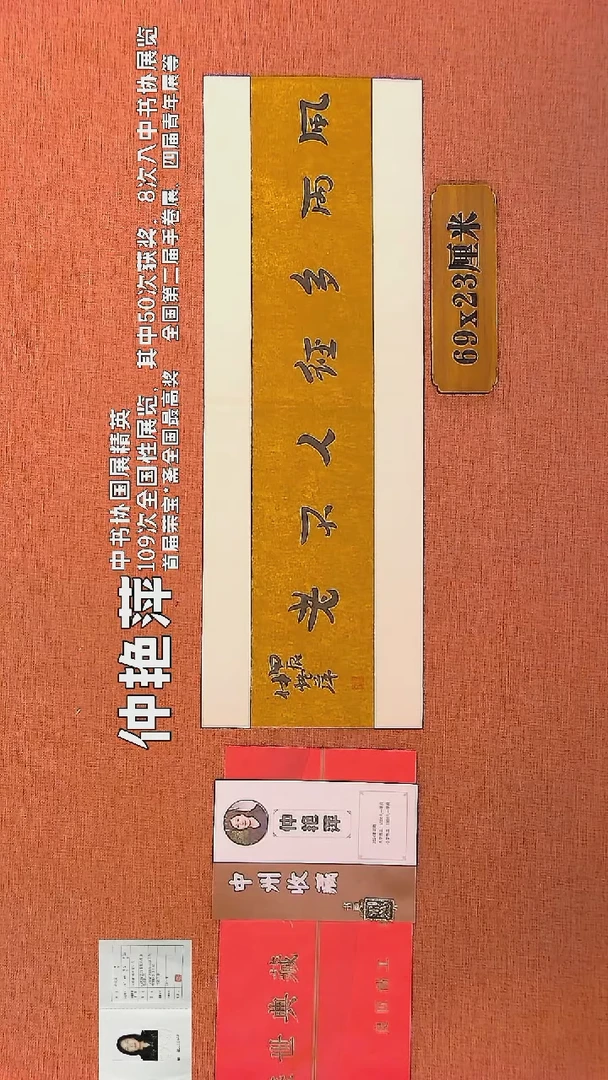 仲艳萍
中书协国展精英
109次全国性展览，其中50次获奖，8次入中书协展览
首届荣宝·斋全国最高奖 全国第二届手卷展、四届青年展等
風雨多經人不老
甲辰
69x23厘米
仲艳萍
中州收藏
世典藏